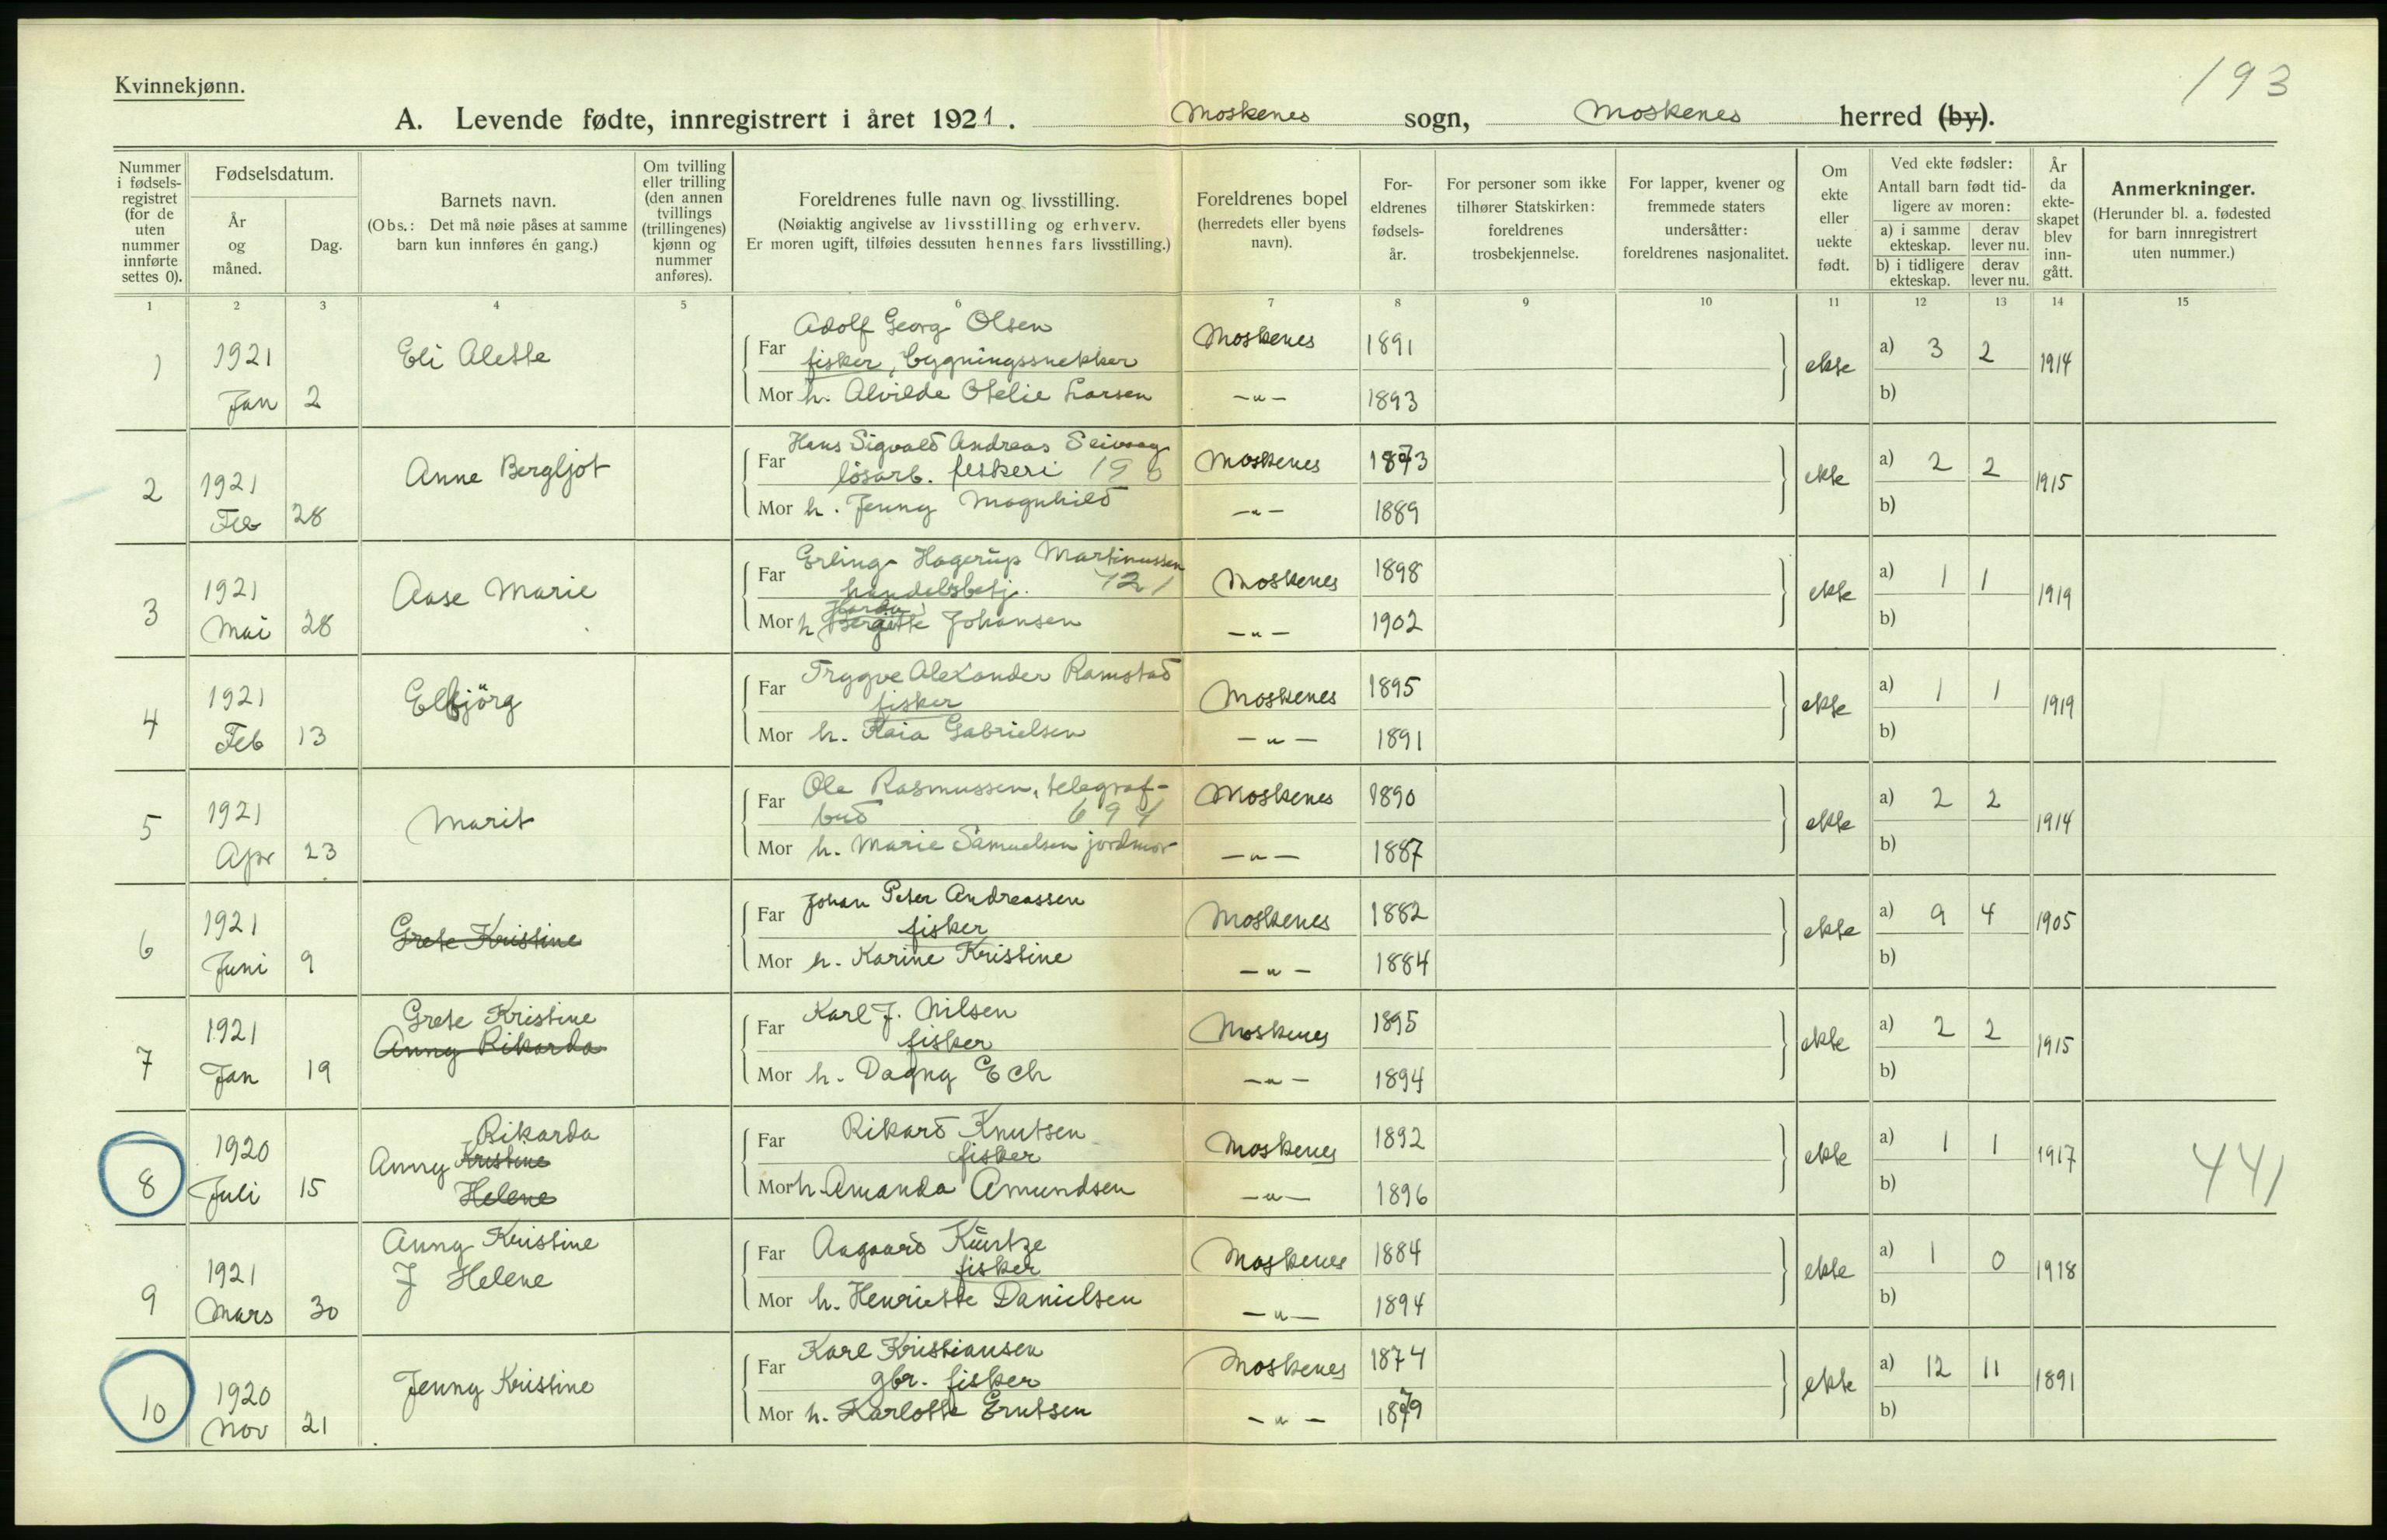 193
Kvinnekjønn.
A. Levende fødte, innregistrert i året 1921. Moskenes sogn, Moskenes herred (by).
Nummer i fødsels-registret (for de uten nummer innførte settes 0).
Fødselsdatum.
År og måned.
Dag.
Barnets navn.
(Obs.: Det må nøie påses at samme barn kun innføres én gang.)
Om tvilling eller trilling (den annen tvillings (trillingenes) kjønn og nummer anføres).
Foreldrenes fulle navn og livsstilling.
(Nøiaktig angivelse av livsstilling og erhverv.
Er moren ugift, tilføies dessuten hennes fars livsstilling.)
Foreldrenes bopel (herredets eller byens navn).
For-eldrenes fødsels-år.
For personer som ikke tilhører Statskirken: foreldrenes trosbekjennelse.
For lapper, kvener og fremmede staters undersåtter: foreldrenes nasjonalitet.
Om ekte eller uekte født.
Ved ekte fødsler:
Antall barn født tid-ligere av moren:
a) i samme ekteskap. derav lever nu.
b) i tidligere ekteskap. derav lever nu.
År da ekte-skapet blev inn-gått.
Anmerkninger.
(Herunder bl. a. fødested for barn innregistrert uten nummer.)
1 2 3 4 5 6 7 8 9 10 11 12 13 14 15
1 1921 Jan 2 Eli Alette
Far Adolf Georg Olsen
fisker, bygningssnekker Moskenes 1891 ekte a) 3 2 1914
Mor h. Alvilde Otelie Larsen -"- 1893 b)
2 1921 Feb 28 Anne Bergljot
Far Hans Sigvald Andreas
lösarb. fiskeri Moskenes 1873 ekte a) 2 2 1915
Mor h. Jenny Magnhild -"- 1889 b)
3 1921 Mai 28 Aase Marie
Far Erling Hagerup Martinussen
handelsbetj. 721 Moskenes 1898 ekte a) 1 1 1919
Mor h Bergitte Johansen -"- 1902 b)
4 1921 Feb 13 Elbjörg
Far Trygve Alexander Ramstad
fisker Moskenes 1895 ekte a) 1 1 1919
Mor h. Kaia Gabrielsen -"- 1891 b)
5 1921 Apr 23 Marit
Far Ole Rasmussen, telegraf-
bud 694 Moskenes 1890 ekte a) 2 2 1914
Mor h. Marie Samuelsen jordmor -"- 1887 b)
6 1921 Juni 9 Grete Kristine
Far Johan Peter Andreassen
fisker Moskenes 1882 ekte a) 9 4 1905
Mor h. Karine Kristine -"- 1884 b)
7 1921 Jan 19 Grete Kristine
Anny Rikarda
Far Karl J. Nilsen
fisker Moskenes 1895 ekte a) 2 2 1915
Mor h. Dagny Ech -"- 1894 b)
8 1920 Juli 15 Rikarda
Anny Kristine
Helene
Far Rikard Knutsen
fisker Moskenes 1892 ekte a) 1 1 1917 441
Mor h. Amanda Amundsen -"- 1896 b)
9 1921 Mars 30 Anny Kristine
J Helene
Far Aagaard Küntze
fisker Moskenes 1884 ekte a) 1 0 1918
Mor h. Henriette Danielsen -"- 1894 b)
10 1920 Nov 21 Jenny Kristine
Far Karl Kristiansen
gbr. fisker Moskenes 1874 ekte a) 12 11 1891
Mor h. Karlotte Erntsen -"- 1879 b)